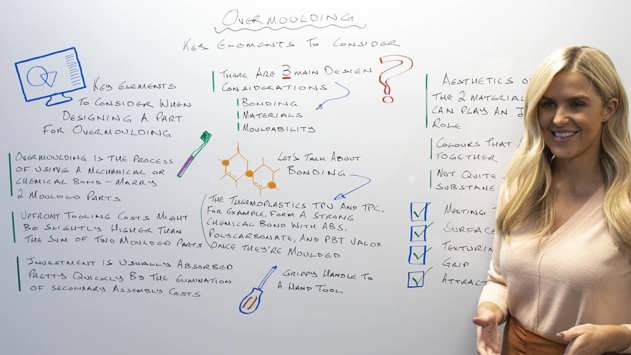 OVERMOULDING
KEY ELEMENTS TO CONSIDER
KEY ELEMENTS
TO CONSIDER WHEN
DESIGNING A PART
FOR OVERMOULDING
OVERMOULDING IS THE PROCESS
OF USING A MECHANICAL OR
CHEMICAL BOND - MARRY
2 MOULDED PARTS
UPFRONT TOOLING COSTS MIGHT
BE SLIGHTLY HIGHER THAN
THE SUM OF TWO MOULDED PARTS
INVESTMENT IS USUALLY ABSORBED
PRETTY QUICKLY BY THE ELIMINATION
OF SECONDARY ASSEMBLY COSTS
THERE ARE 3 MAIN DESIGN
CONSIDERATIONS
BONDING
MATERIALS
MOULDABILITY
?
LET'S TALK ABOUT
BONDING
THE THERMOPLASTICS TPU AND TPC,
FOR EXAMPLE, FORM A STRONG
CHEMICAL BOND WITH ABS,
POLYCARBONATE, AND PBT VALOX
ONCE THEY'RE MOULDED
GRIPPY HANDLE TO
A HAND TOOL
AESTHETICS
THE 2 MATERIAL
CAN PLAY AN
ROLE
COLOURS THAT
TOGETHER
NOT QUITE
MELTING
SURFACE
TEXTURING
GRIP